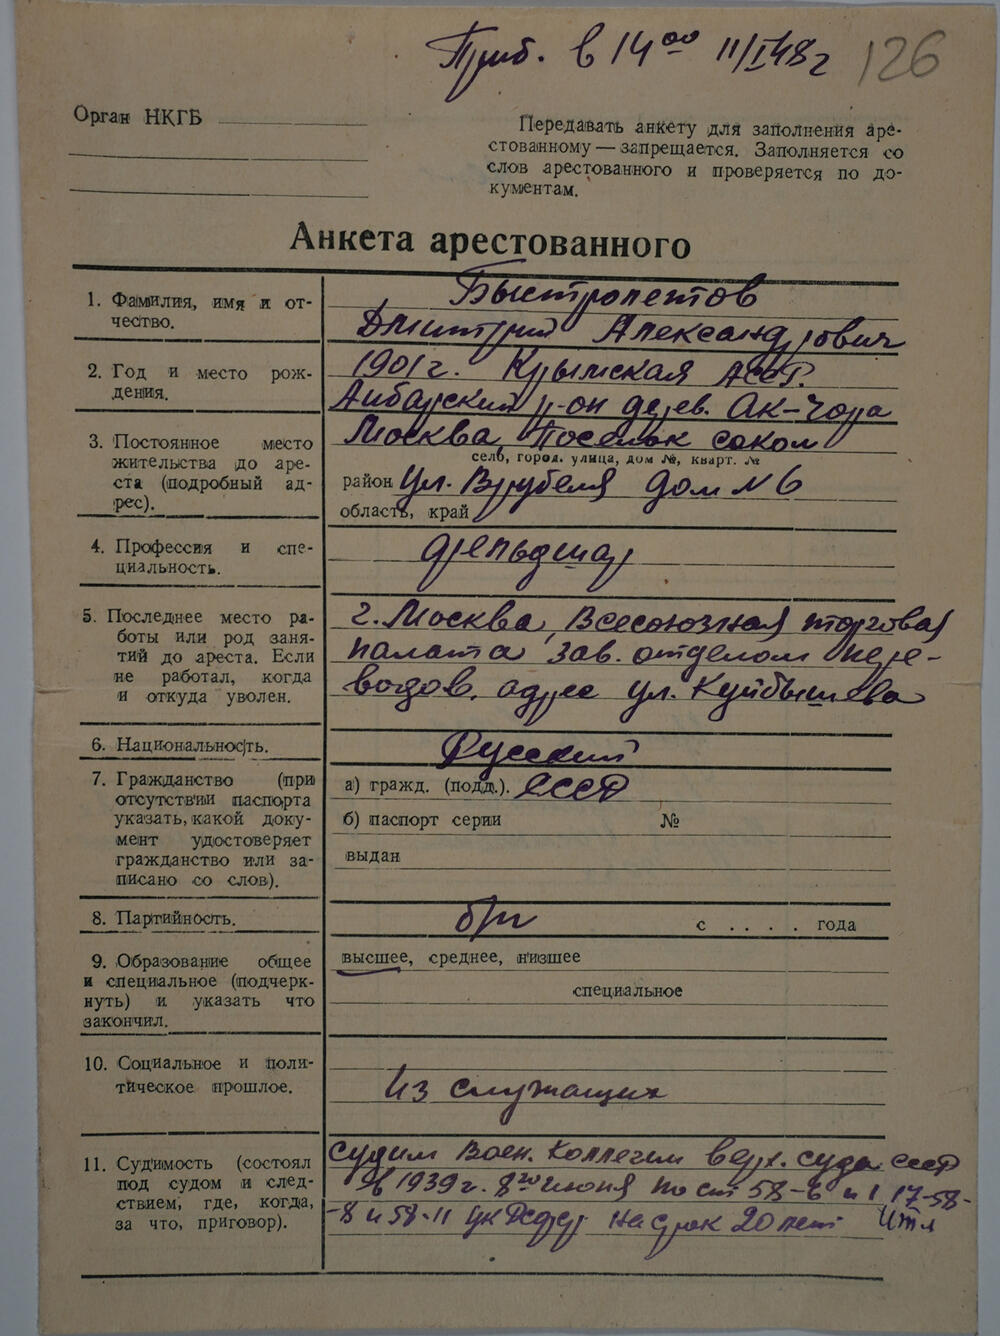 Приб. в 14 00 11/I 48 г 126
Орган НКГБ
Передавать анкету для заполнения аре-
стованному — запрещается. Заполняется со
слов арестованного и проверяется по до-
кументам.
Анкета арестованного
1. Фамилия, имя и от-
чество.
Быстролетов
Дмитрий Александрович
2. Год и место рож-
дения.
1901 г. Крымская АССР.
Акбарский р-он дерев. Ак-Чора
3. Постоянное место
жительства до аре-
ста (подробный ад-
рес).
Москва, Поселок сокол
село, город. улица, дом №, кварт. №
район ул. Врубеля дом № 6
область, край
4. Профессия и спе-
циальность.
фельдшер
5. Последнее место ра-
боты или род заня-
тий до ареста. Если
не работал, когда
и откуда уволен.
г. Москва, Всесоюзная торговая
палата зав. отделом пере-
водов, адрес ул. Куйбышева
6. Национальность.
Русский
7. Гражданство (при
отсутствии паспорта
указать, какой доку-
мент удостоверяет
гражданство или за-
писано со слов).
а) гражд. (подд.). СССР
б) паспорт серии №
выдан
8. Партийность.
б/п с . . . . года
9. Образование общее
и специальное (подчерк-
нуть) и указать что
закончил.
высшее, среднее, низшее
специальное
10. Социальное и поли-
тическое прошлое.
Из служащих
11. Судимость (состоял
под судом и след-
ствием, где, когда,
за что, приговор).
судим Воен. Коллегии верх. суда СССР
в 1939 г. 8го июня по ст 58-6 и 1 17-58-
-8 и 58-11 УК РСФСР на срок 20 лет ИТЛ